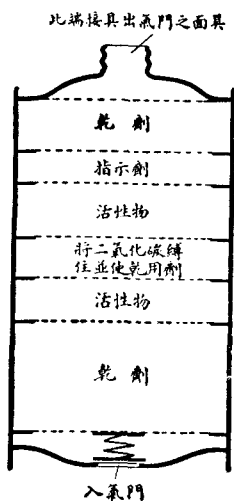 此端接具出氣門之面具
乾劑
指示劑
活性物
將二氧化碳縛
住並使乾用劑
活性物
乾劑
入氣門